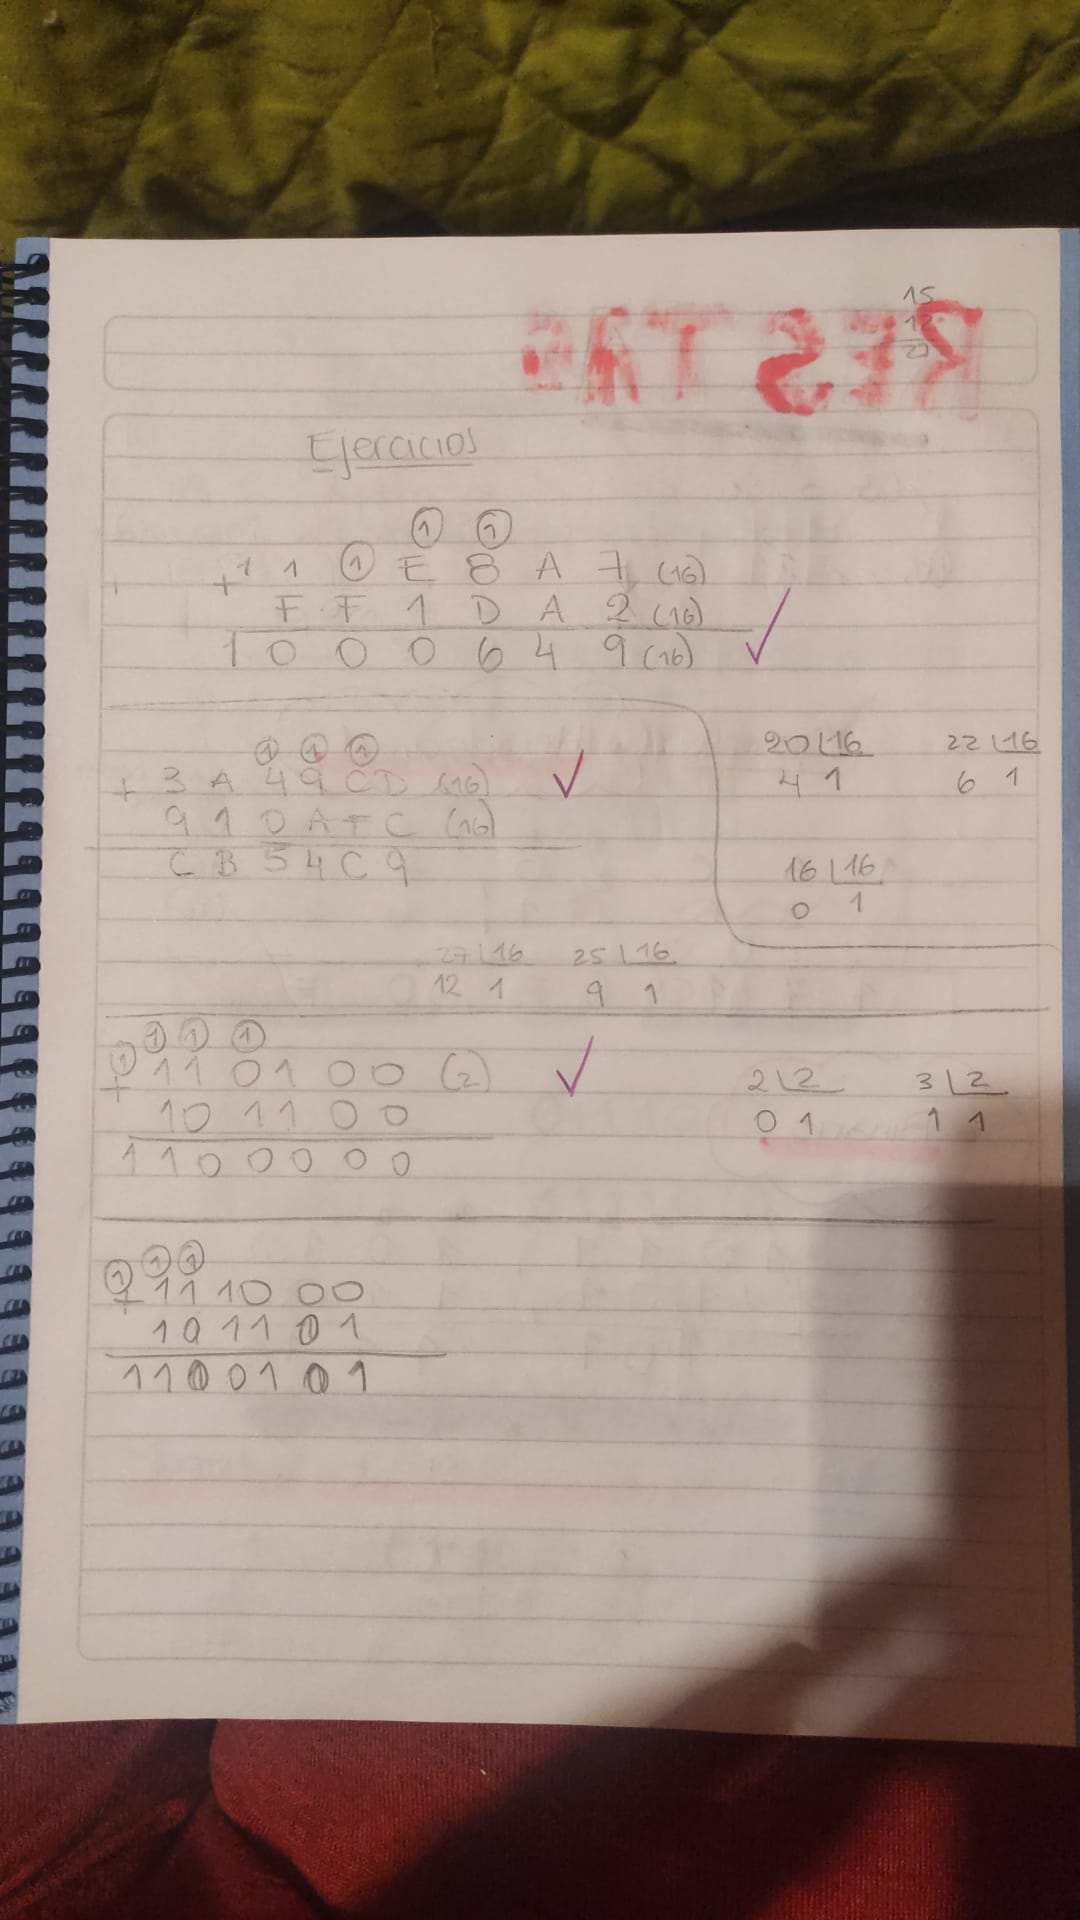 15
12
27
RESTAS
Ejercicios
1 1
+ 1 1 1 E 8 A 7 (16)
F F 1 D A 2 (16)
1 0 0 0 6 4 9 (16)
1 1 1
+ 3 A 4 9 C D (16)
9 1 0 A F C (16)
C B 5 4 C 9
20 16
4 1
22 16
6 1
16 16
0 1
27 16
12 1
25 16
9 1
1 1 1 1
+ 1 1 0 1 0 0 (2)
1 0 1 1 0 0
1 1 0 0 0 0 0
2 2
0 1
3 2
1 1
1 1 1
+ 1 1 1 0 0 0
1 0 1 1 0 1
1 1 0 0 1 0 1